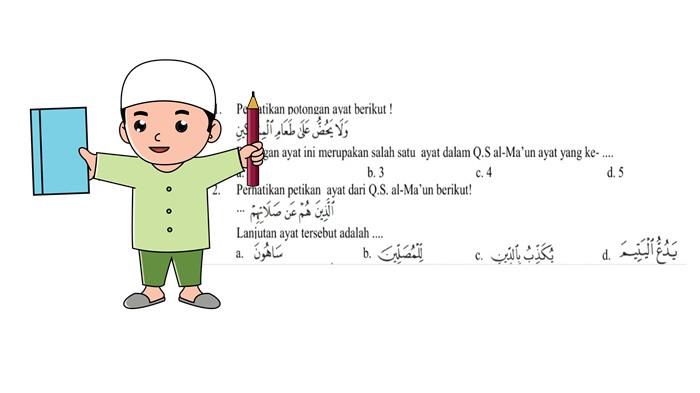 Perhatikan potongan ayat berikut !
وَلَا يَحُضُّ عَلَىٰ طَعَامِ الْمِسْكِينِ
ayat ini merupakan salah satu ayat dalam Q.S al-Ma’un ayat yang ke- ....
b. 3 c. 4 d. 5
2. Perhatikan petikan ayat dari Q.S. al-Ma’un berikut!
الَّذِينَ هُمْ عَن صَلَاتِهِمْ ...
Lanjutan ayat tersebut adalah ....
a. سَاهُونَ b. لِلْمُصَلِّينَ c. يُكَذِّبُ بِالدِّينِ d. يَدُعُّ الْيَتِيمَ